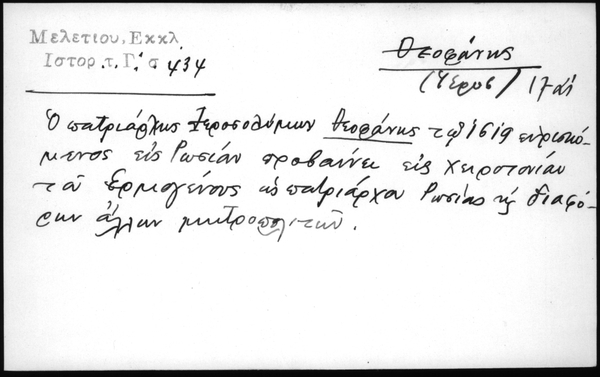 Μελετίου, Εκκλ.
Ιστορ. τ. Γ΄ σ. 434
Θεοφάνης
(Ιεροσ) 17 αι
Ὁ πατριάρχης Ἱεροσολύμων Θεοφάνης τῷ 1619 εὑρισκό-
μενος εἰς Ρωσίαν προβαίνει εἰς χειροτονίαν
τοῦ Ερμογένους ὡς πατριάρχου Ρωσίας κ διαφό-
ρων ἄλλων μητροπολιτῶν.